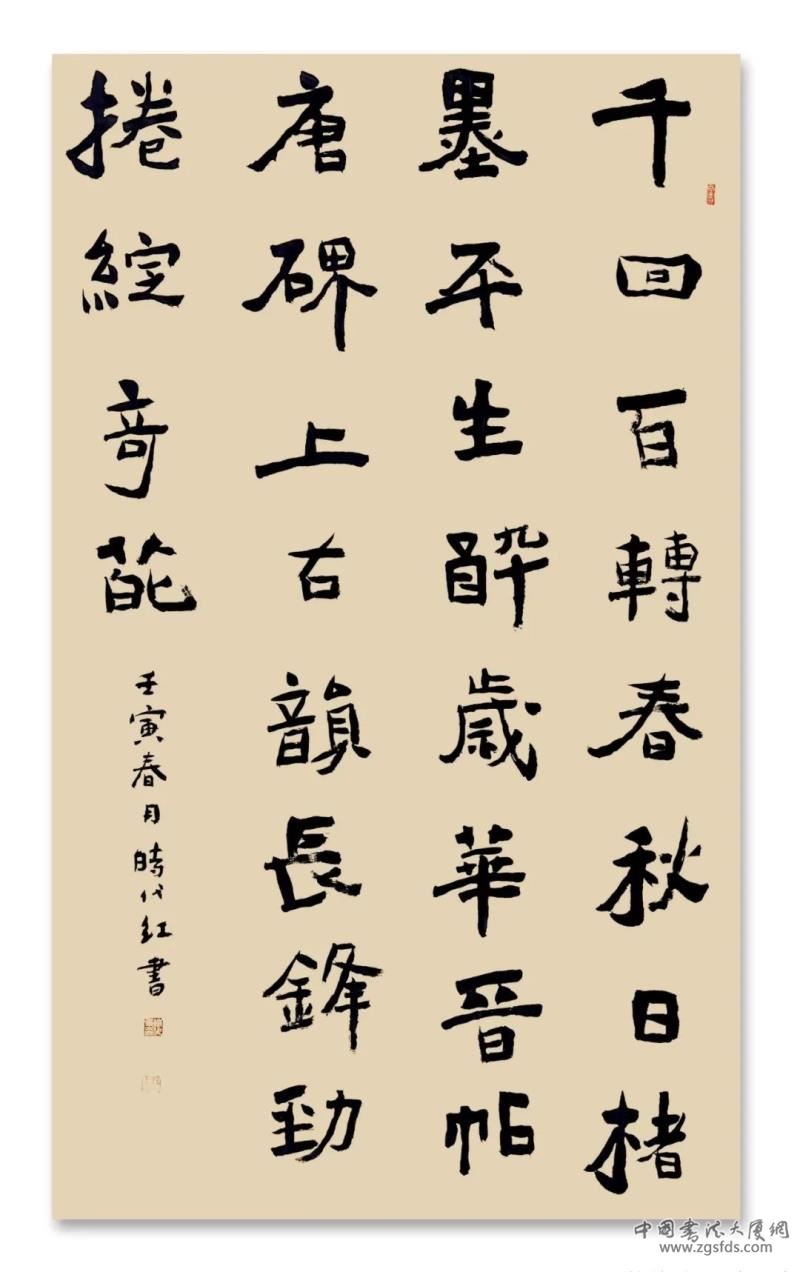 千回百轉春秋日楮
墨平生醉歲華晉帖
唐碑上古韻長鋒勁
捲綻奇葩
壬寅春月時代紅書
中國書法大廈網
www.zgsfds.com